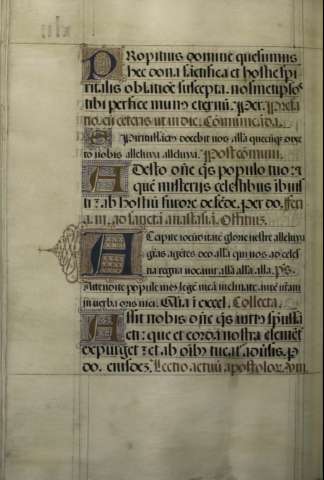 Propitius domine quesumus
hec dona sanctifica et hostie spi
ritalis oblatione suscepta. nosmetipsos
tibi perfice munus eternum. Per. Prefa
tio. et cetera ut in die. Communicanda.
Spiritus sanctus docebit vos alla quecunque dixe
ro vobis alleluya alleluya. Postcomun.
Adesto dñe qs populo tuo: z
que misterijs celestibus imbuis
ti: z ab hostium furore defende. per do. feria
.iij. ad sanctam anastasiam. Officius.
Accipite iocunditatem glorie vestre alleluya
gratias agentes deo alla qui vos ad celes
tia regna vocavit. alla alla. alla. ps.
Attendite popule meus legem meam inclinate aurem vestram
in verba oris mei. Gloria i excel. Collecta.
Assit nobis dñe qs virtus spussancti
et: que et corda nostra clementer
expurget: z et ab oibus tueatur adversis. p
do. eiusdez. Lectio actuum apostolorum. viij.